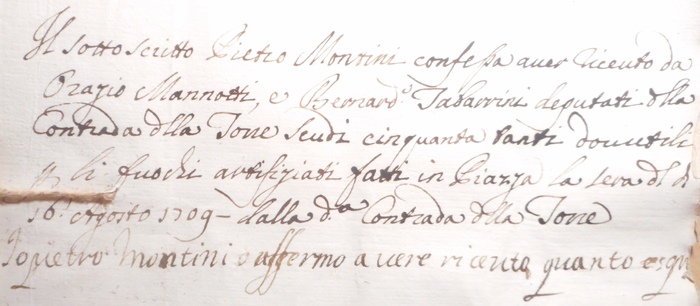 Il sottoscritto Pietro Montini confessa aver riceuto da
Orazio Mannotti, e Bernardo Tabarrini deputati dlla
Contrada dlla Torre scudi cinquanta tanti douutili
p li fuochi artifiziati fatti in Piazza la sera dl dì
16 Agosto 1709 – dalla da Contrada dlla Torre
Io pietro Montini affermo avere riceuto quanto